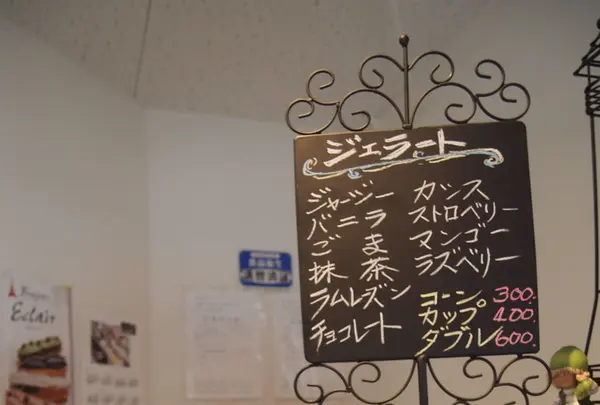 ジェラート
ジャージー
バニラ
ごま
抹茶
ラムレーズン
チョコレート
カシス
ストロベリー
マンゴー
ラズベリー
コーン 300.
カップ 400.
ダブル 600.
Eclair